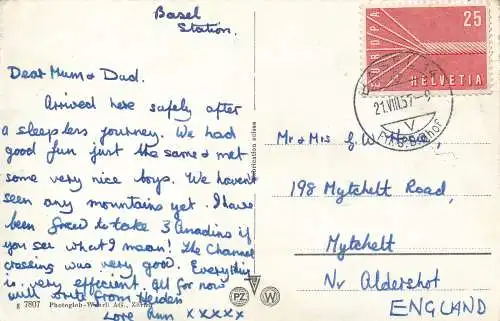 Basel
Station.
Dear Mum & Dad.
Arrived here safely after
a sleepless journey. We had
good fun just the same & met
some very nice boys. We haven't
seen any mountains yet. I have
been forced to take 3 Anadins if
you see what I mean! The Channel
crossing was very good. Everything
is very efficient. All for now
will write from Heiden
Love Ann xxxxx
7807 Photoglob-Wehrli AG., Zürich
PZ
W
EUROPA
25
HELVETIA
21.VIII.57-9
V
Mr & Mrs G. W.
198 Mytchelt Road,
Mytchelt
Nr Aldershot
ENGLAND